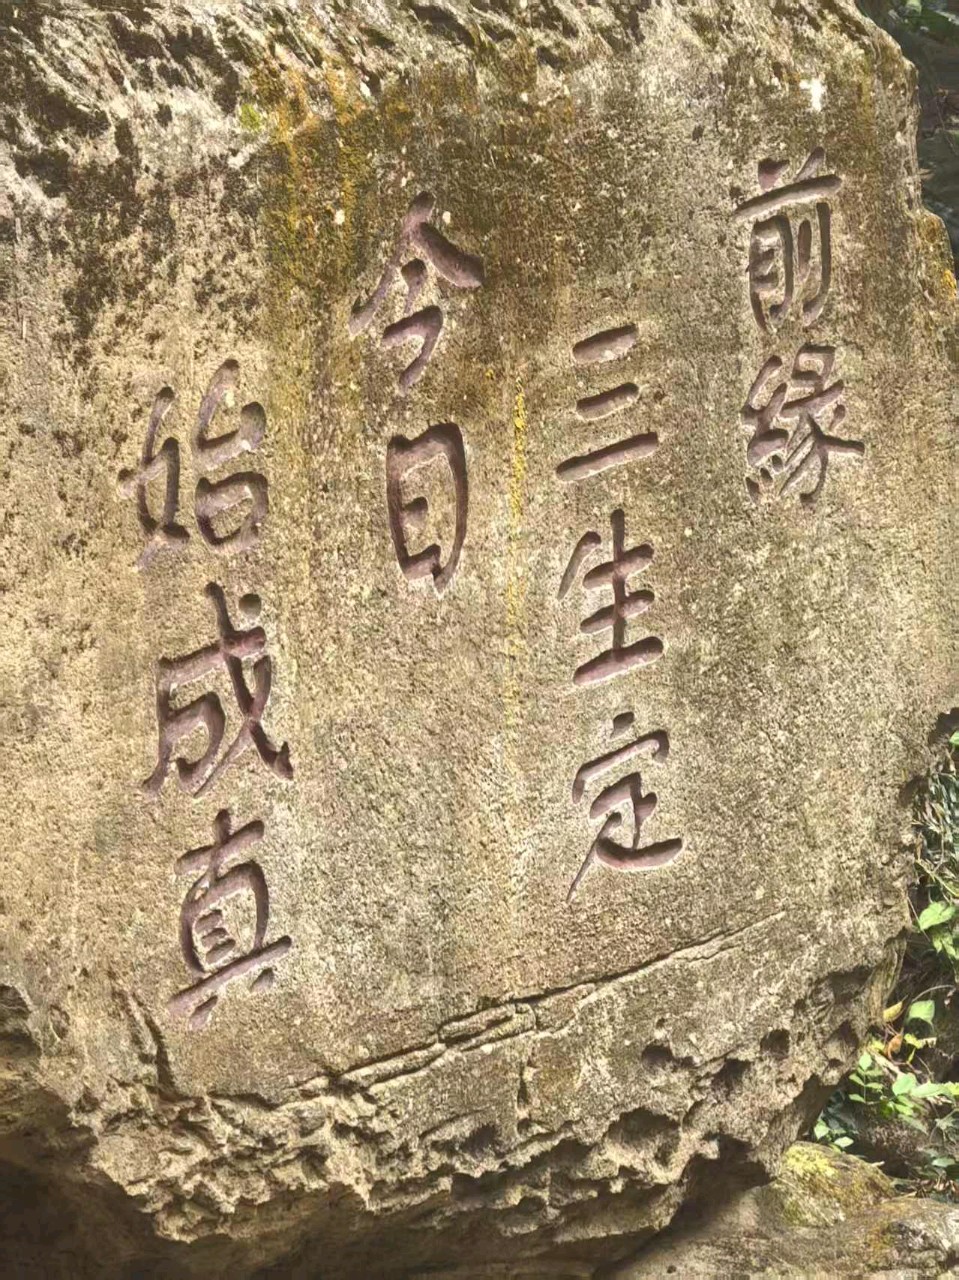 前緣
三生定
今日
始成真